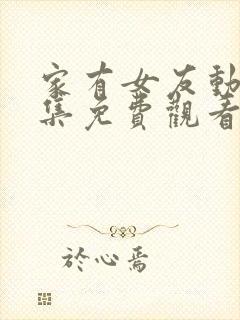 家有女友動
集免費觀看
於心焉